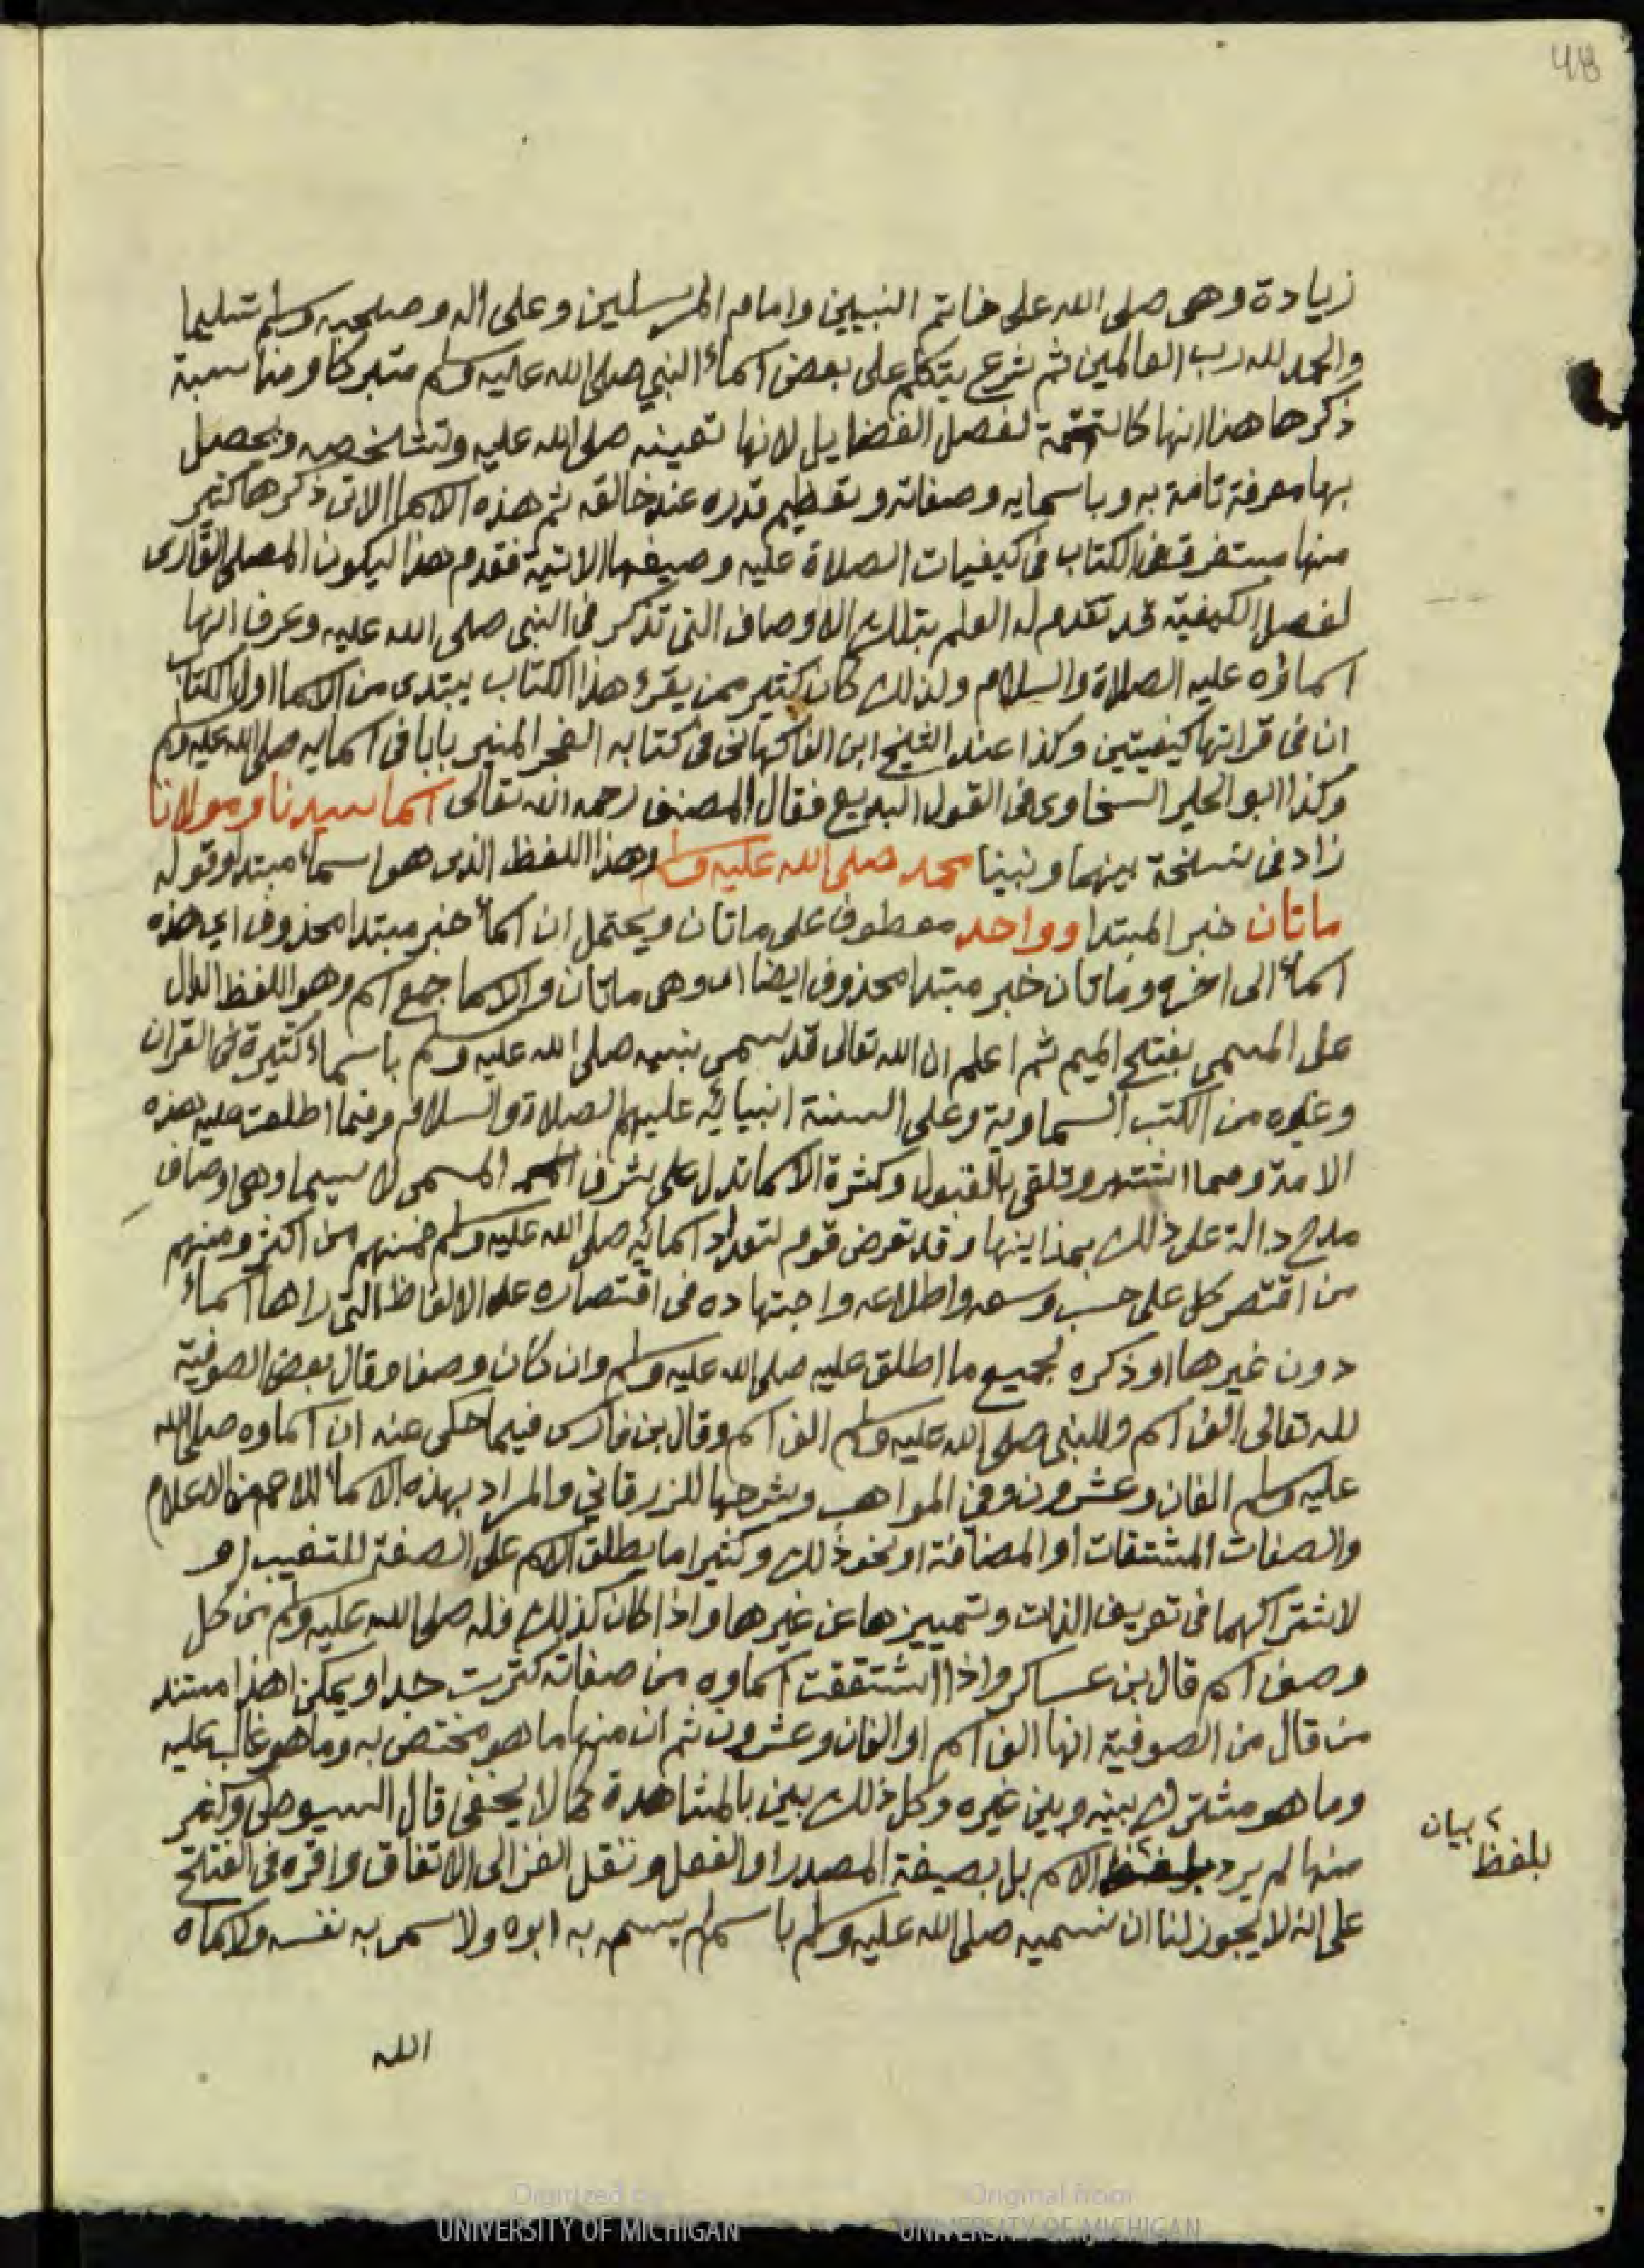 48
زيادة وهى صلى الله على خاتم النبيين وامام المرسلين وعلى اله وصحبه وسلم تسليما
والحمد لله رب العالمين ثم شرع يتكلم على بعض اسماء النبي صلى الله عليه وسلم متبركا ومناسبة
ذكرها هنا انها كالتتمة لفصل الفضايل لانها تعينه صلى الله عليه وتشخصه ويحصل
بها معرفة تامة به وباسمايه وصفاته وتعظيم قدره عند خالقه ثم هذه الاسما الاتى ذكرها كثير
منها مستفرقة فى الكتاب فى كيفيات الصلاة عليه وصيغها الاتية فقدم هذا ليكون المصلى القارى
لفصل الكيفية قد تقدم له العلم بتلك الاوصاف التى تذكر فى النبى صلى الله عليه وعرف انها
اسماؤه عليه الصلاة والسلام ولذلك كان كثير ممن يقرء هذا الكتاب يبتدى من الاسما اول الكتاب
ان فى قراتها كيفيتين وكذا عند الشيخ ابن الفاكهانى فى كتابه الفجر المنير بابا فى اسمايه صلى الله عليه وسلم
وكذا ابو الخير السخاوى فى القول البديع فقال المصنف رحمه الله تعالى اسما سيدنا ومولانا
زاد فى نسخة بينهما ونبينا محمد صلى الله عليه وسلم وهذا اللفظ الذى هو اسماء مبتدا وقوله
ماتان خبر المبتدا وواحد معطوف على ماتان ويحتمل ان اسماء خبر مبتدا محذوف اى هذه
اسماء الى اخره وماتان خبر مبتدا محذوف ايضا اى وهى ماتان والاسما جمع اسم وهو اللفظ الدال
على المسمى بفتح الميم ثم اعلم ان الله تعالى قد سمى نبيه صلى الله عليه وسلم باسماء كثيرة فى القران
وغيره من الكتب السماوية وعلى السنة انبيائه عليهم الصلاة والسلام ومما اطلعت عليه هذه
الامة ومما اشتهر وتلقى بالقبول وكثرة الاسما تدل على شرف المسمى لا سيما وهى اوصاف
مدح دالة على ذلك بمذاينها وقد تعرض قوم لتعداد اسمائه صلى الله عليه وسلم فمنهم من اكثر ومنهم
من اقتصر كل على حسب وسعه واطلاعه واجتهاده فى اقتصاره على الالفاظ التى راها اسماء
دون غيرها او ذكره لجميع ما اطلق عليه صلى الله عليه وسلم وان كان وصفا وقال بعض الصوفية
لله تعالى الف اسم وللنبى صلى الله عليه وسلم الف اسم وقال بن فارس فيما حكى عنه ان اسماوه صلى الله
عليه وسلم الفان وعشرون وفى المواهب وشرحها للزرقاني والمراد بهذه الاسماء الاعم من الاعلام
والصفات المشتقات او المضافة او نحو ذلك وكثيرا ما يطلق الاسم على الصفة للتغيب او
لاشتراكهما فى تعريف الذات وتمييزها عن غيرها واذا كان كذلك فله صلى الله عليه وسلم من كل
وصف اسم قال بن عساكر واذا اشتققت اسماوه من صفاته كثرت جدا ويمكن هذا مستند
من قال من الصوفية انها الف اسم او الفان وعشرون ثم ان منها ما هو مختص به وما هو غالب عليه
وما هو مشترك بينه وبين غيره وكل ذلك بين بالمشاهدة كما لا يخفى قال السيوطى وكثير
منها لم يرد بلفظ الاسم بل بصيغة المصدر او الفعل ونقل الغزالى الاتفاق واقره فى الفتح
على انه لا يجوز لنا ان نسميه صلى الله عليه وسلم باسم لم يسمه به ابوه ولا سمى به نفسه ولا سماه
بيان
بلفظ
الله
Digitized by
UNIVERSITY OF MICHIGAN
Original from
UNIVERSITY OF MICHIGAN